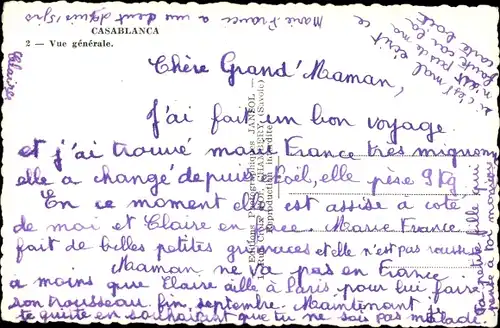 CASABLANCA
2 — Vue générale.
Marie France a une dent depuis 15 jrs
si c'est mal écrit ce
n'est pas de ma
faute
Chère Grand'Maman,
J'ai fait un bon voyage
et j'ai trouvé marie France très mignonne
elle a changé depuis Noël, elle pèse 9 Kg
En ce moment elle est assise à côté
de moi et Claire en face. Marie France
fait de belles petites grimaces et elle n'est pas
Maman ne va pas en France
à moins que Claire aille à Paris pour lui faire
son trousseau fin septembre. Maintenant je
te quitte en souhaitant que tu ne sois pas malade.
Ta petite fille qui
Claire
Editions Photographiques JANSOL
CHAMBÉRY (Savoie)
Reproduction interdite